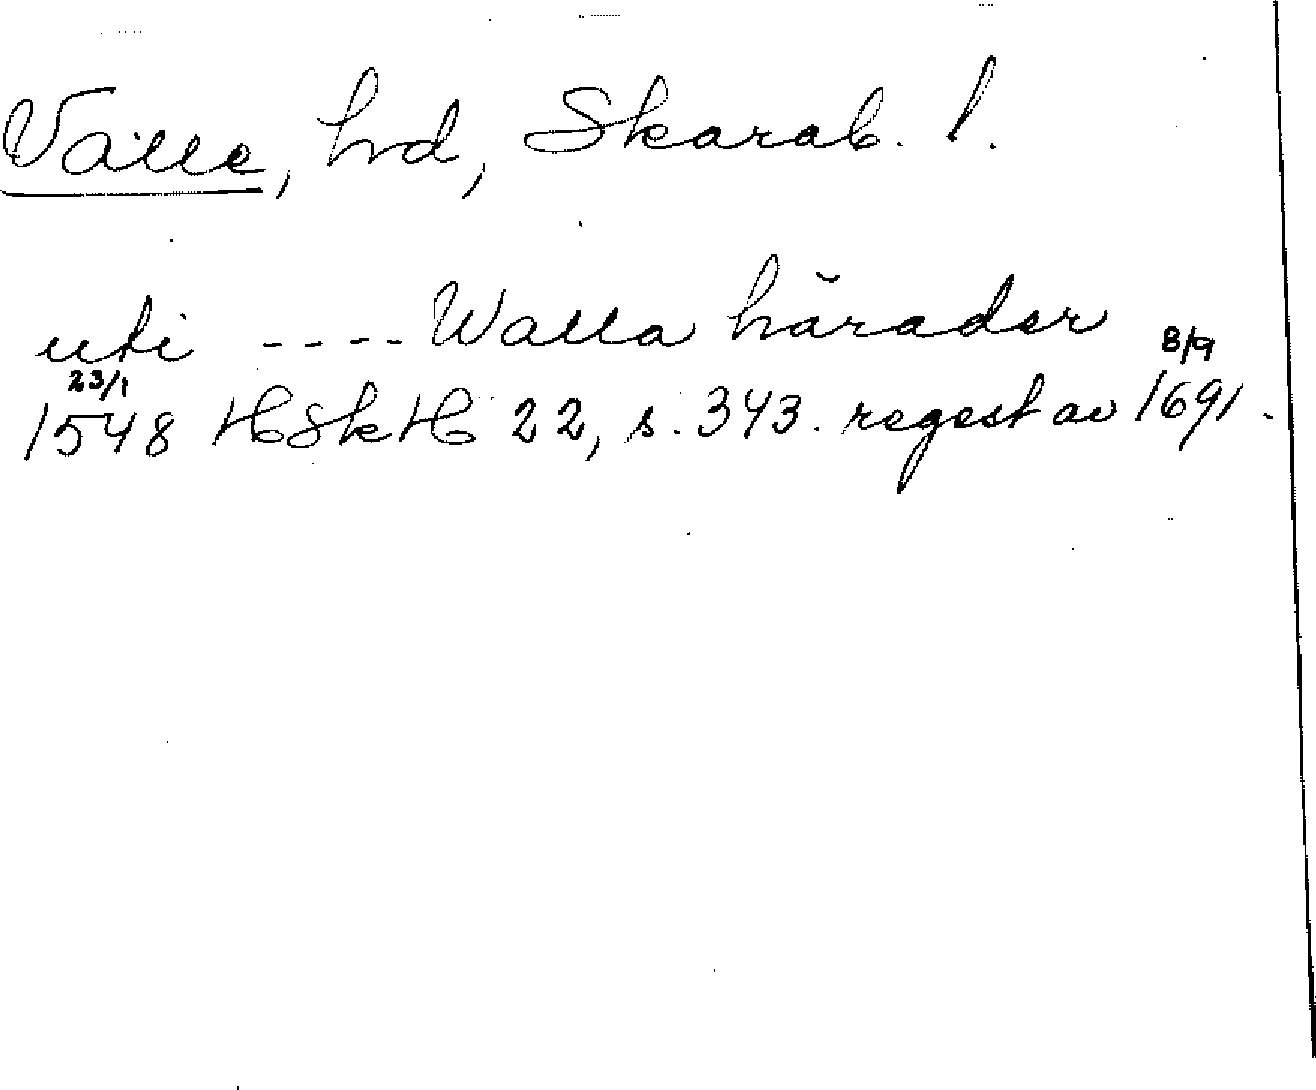 Valle, hd, Skarab. l.
uti ---- Walla härader
23/1 8/9
1548 HSkH 22, s. 343. regest av 1691.